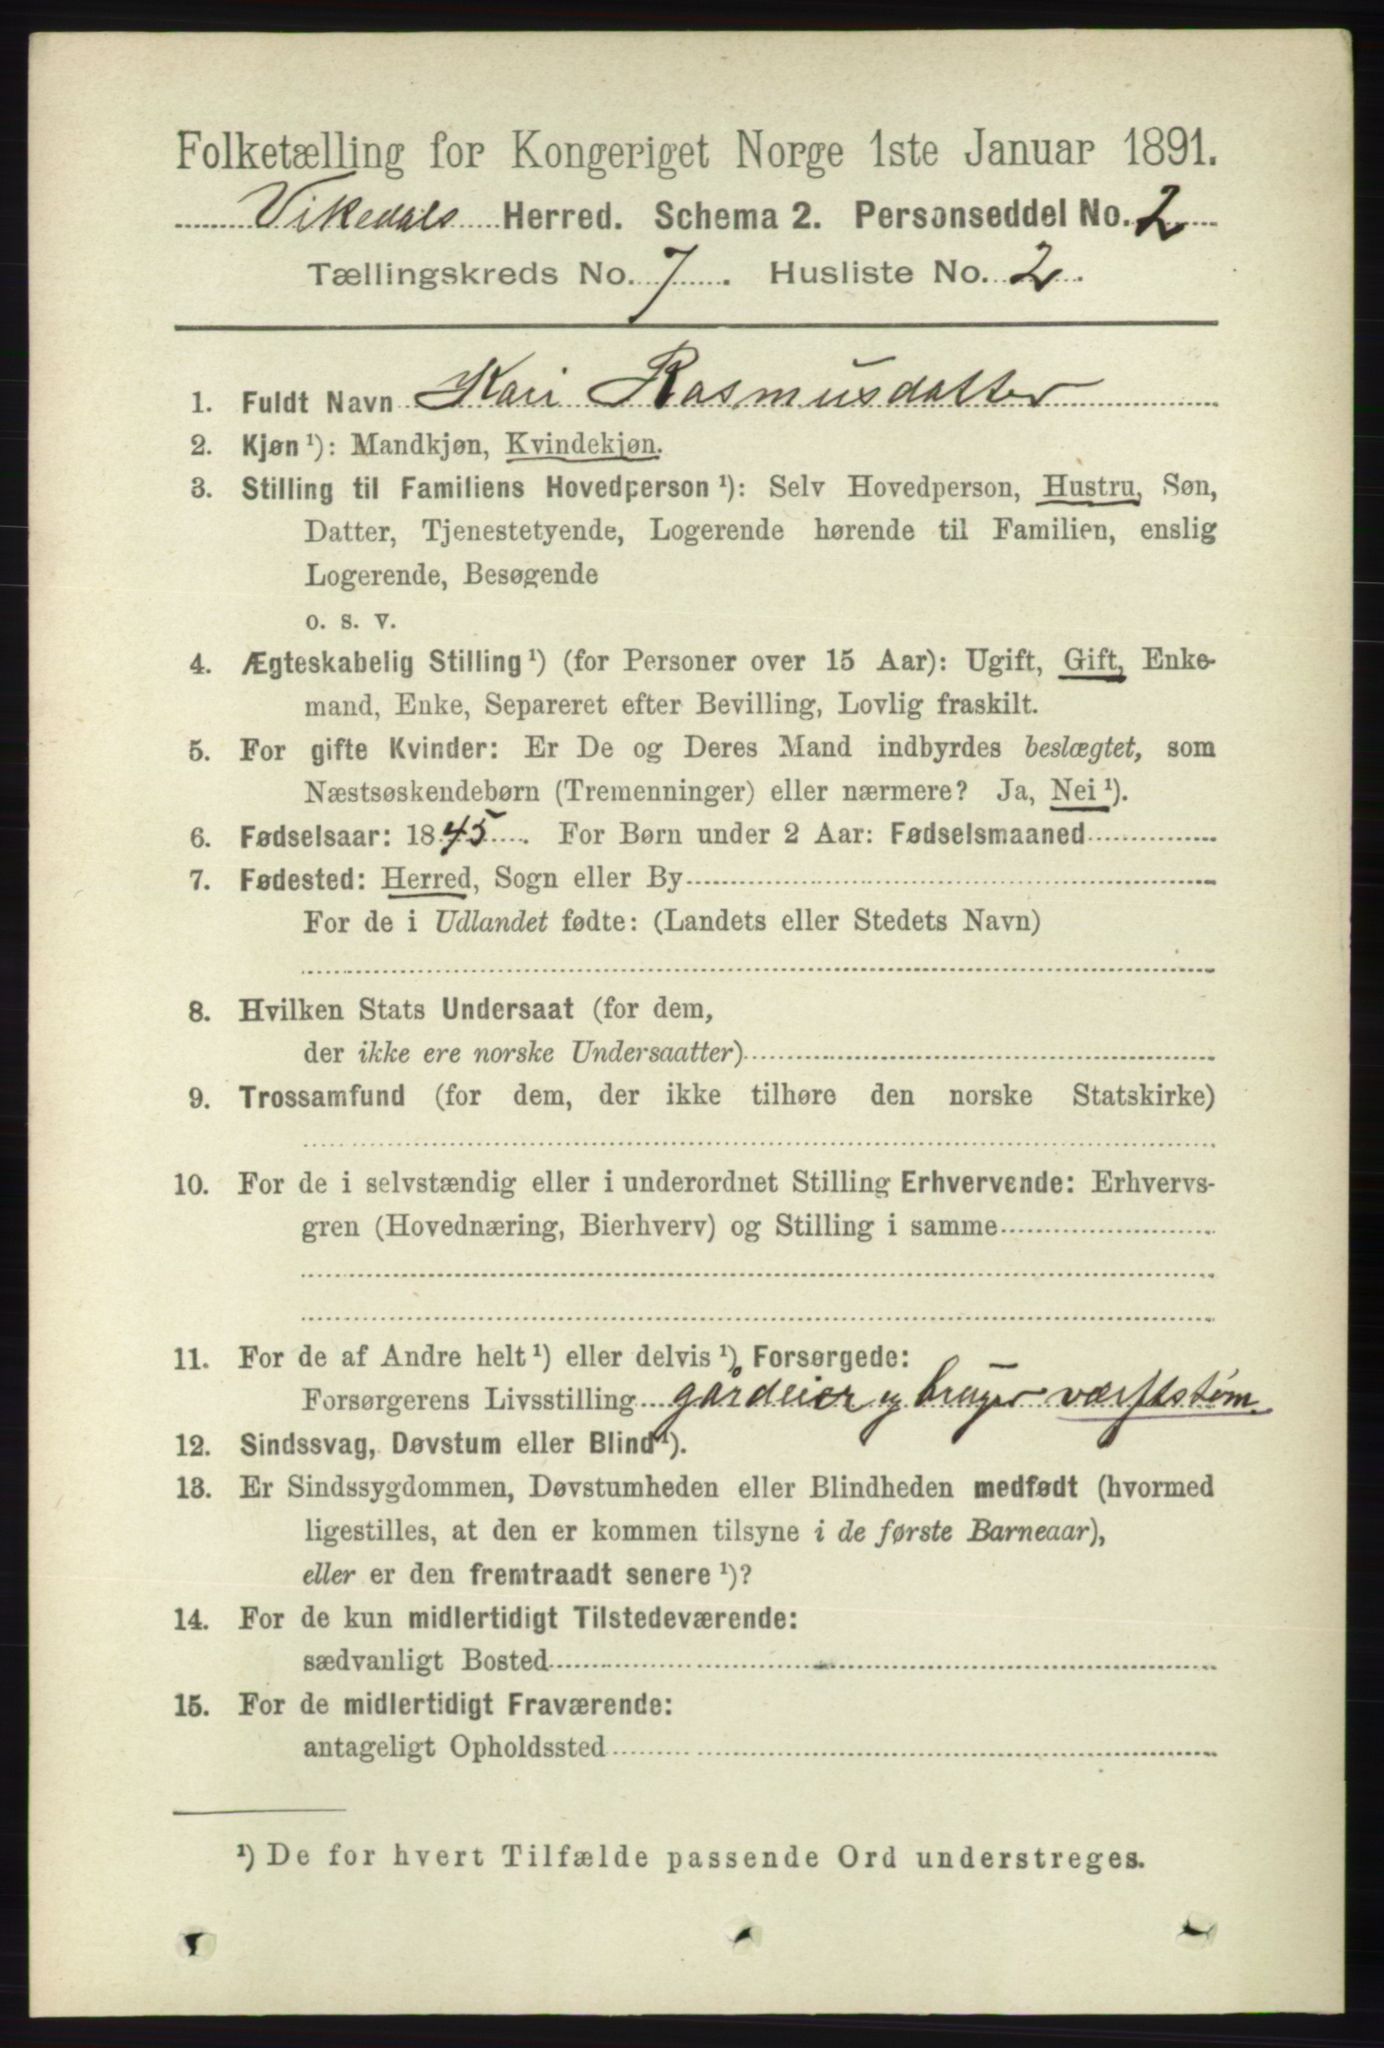 Folketælling for Kongeriget Norge 1ste Januar 1891.
Vikedals Herred. Schema 2. Personseddel No. 2
Tællingskreds No. 7. Husliste No. 2.
1. Fuldt Navn Kari Rasmusdatter
2. Kjøn ¹): Mandkjøn, Kvindekjøn.
3. Stilling til Familiens Hovedperson ¹): Selv Hovedperson, Hustru, Søn,
Datter, Tjenestetyende, Logerende hørende til Familien, enslig
Logerende, Besøgende
o. s. v.
4. Ægteskabelig Stilling ¹) (for Personer over 15 Aar): Ugift, Gift, Enke-
mand, Enke, Separeret efter Bevilling, Lovlig fraskilt.
5. For gifte Kvinder: Er De og Deres Mand indbyrdes beslægtet, som
Næstsøskendebørn (Tremenninger) eller nærmere? Ja, Nei ¹).
6. Fødselsaar: 1845. For Børn under 2 Aar: Fødselsmaaned
7. Fødested: Herred, Sogn eller By
For de i Udlandet fødte: (Landets eller Stedets Navn)
8. Hvilken Stats Undersaat (for dem,
der ikke ere norske Undersaatter)
9. Trossamfund (for dem, der ikke tilhøre den norske Statskirke)
10. For de i selvstændig eller i underordnet Stilling Erhvervende: Erhvervs-
gren (Hovednæring, Bierhverv) og Stilling i samme
11. For de af Andre helt ¹) eller delvis ¹) Forsørgede:
Forsørgerens Livsstilling gårdeier og bruger værftstøm.
12. Sindssvag, Døvstum eller Blind ¹).
13. Er Sindssygdommen, Døvstumheden eller Blindheden medfødt (hvormed
ligestilles, at den er kommen tilsyne i de første Barneaar),
eller er den fremtraadt senere ¹)?
14. For de kun midlertidigt Tilstedeværende:
sædvanligt Bosted
15. For de midlertidigt Fraværende:
antageligt Opholdssted
¹) De for hvert Tilfælde passende Ord understreges.